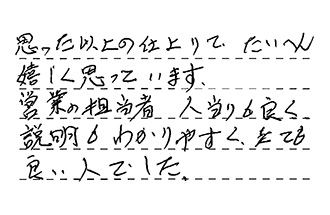 思った以上の仕上りで たいへん
嬉しく思っています、
営業の担当者 人当りも良く、
説明もわかりやすく、とても
良い人でした。